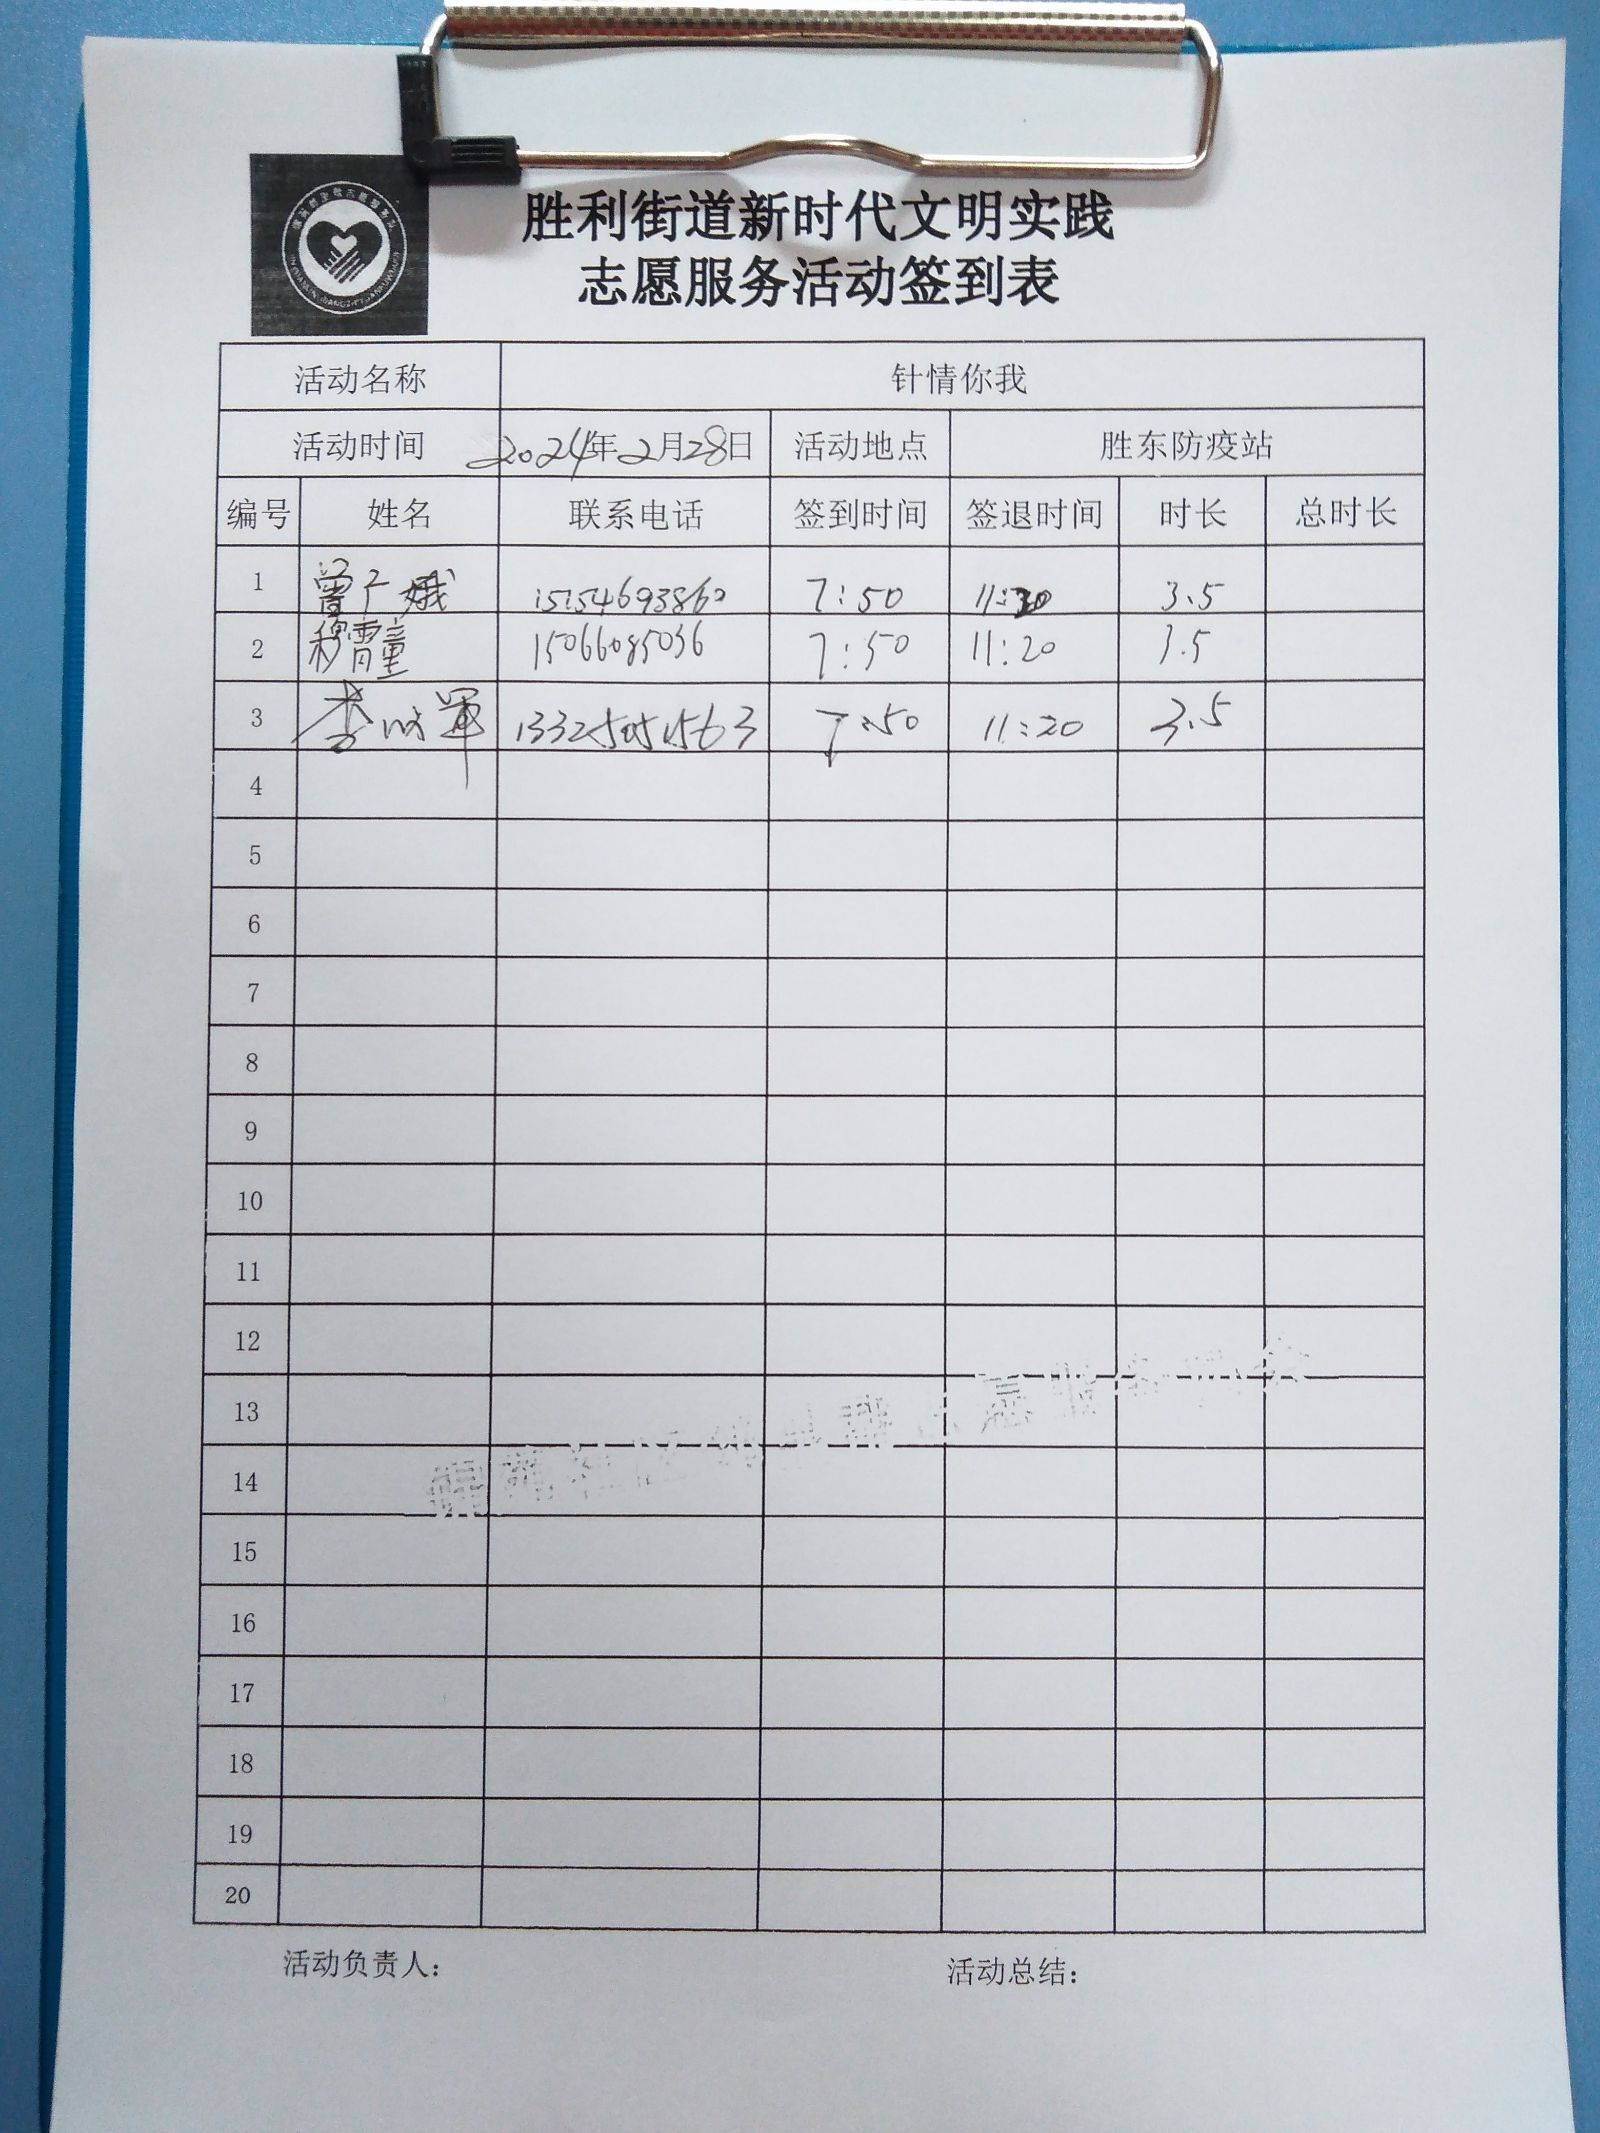 胜利街道新时代文明实践
志愿服务活动签到表
活动名称 针情你我
活动时间 2024年2月28日 活动地点 胜东防疫站
编号 姓名 联系电话 签到时间 签退时间 时长 总时长
1 曾广娥 15154693862 7:50 11:20 3.5
2 穆霄童 15066085036 7:50 11:20 3.5
3 李 軍 13325051563 7:50 11:20 3.5
4
5
6
7
8
9
10
11
12
13
14
15
16
17
18
19
20
活动负责人： 活动总结：